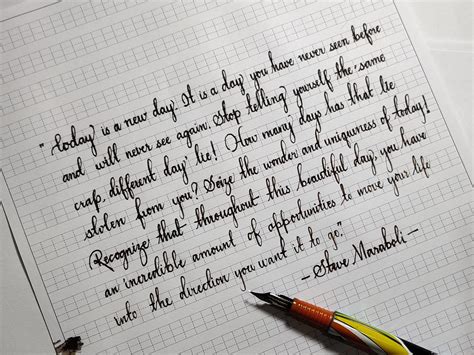 "Today is a new day. It is a day you have never seen before
and will never see again. Stop telling yourself the 'same
crap, different day' lie! How many days has that lie
stolen from you? Seize the wonder and uniqueness of today!
Recognize that throughout this beautiful day, you have
an incredible amount of opportunities to move your life
into the direction you want it to go."
- Steve Maraboli -